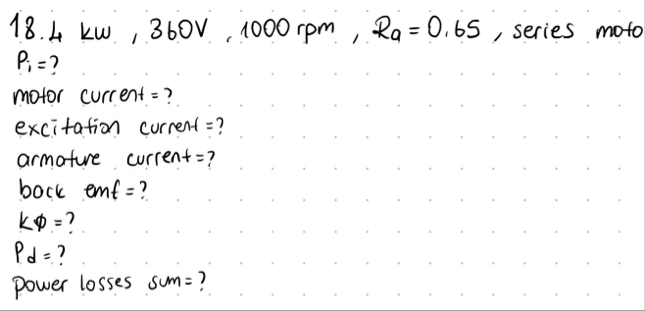 18.4 kw , 360V , 1000 rpm , Ra = 0.65 , series moto
Pi = ?
motor current = ?
excitation current = ?
armature current = ?
back emf = ?
kφ = ?
Pd = ?
power losses sum = ?